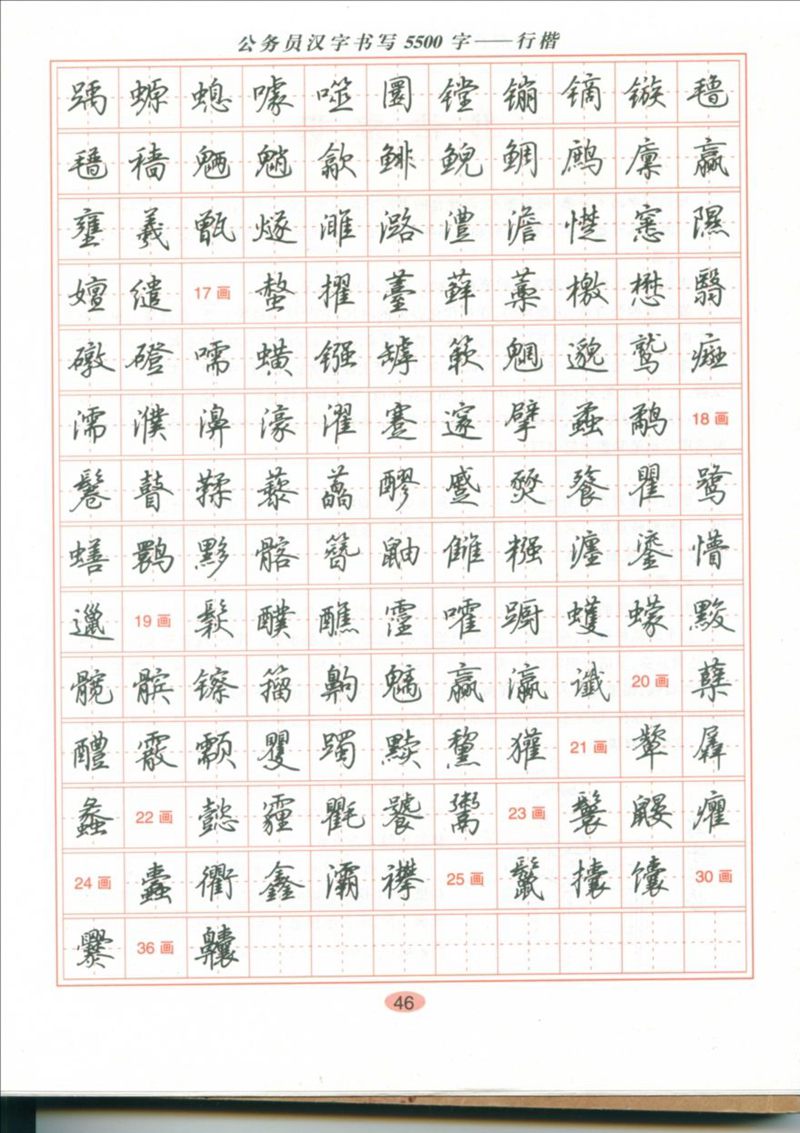 公务员汉字书写 5500 字——行楷
踽 螈 螅 噱 噬 圜 镗 镚 镝 镞 氇
氆 穑 魉 魈 歙 鲱 鲵 鲷 鹧 廪 羸
壅 羲 甑 燧 濉 潞 澧 澹 憷 窸 隰
嬗 缱 17画 螯 擢 薹 藓 藁 檄 懋 翳
礅 磴 嚅 蟥 镪 罅 簌 魍 邈 鹫 癍
濡 濮 濞 濠 濯 蹇 邃 擘 螽 鹬 18画
鬈 瞽 鞣 藜 藠 醪 蹙 燹 餮 瞿 鹭
蟮 鹮 黟 髂 簪 鼬 雠 糨 瀍 鎏 懵
邋 19画 鬏 醭 醮 霪 嚯 蹰 蠖 蠓 黢
髋 髌 镲 籀 齁 魑 嬴 瀛 谶 20画 蘖
醴 霰 颥 矍 躅 黩 黧 獾 21画 颦 羼
蠡 22画 懿 霾 氍 饕 鬻 23画 鬟 鼹 癯
24画 蠹 衢 鑫 灞 襻 25画 鬣 攮 馕 30画
爨 36画 齉
46